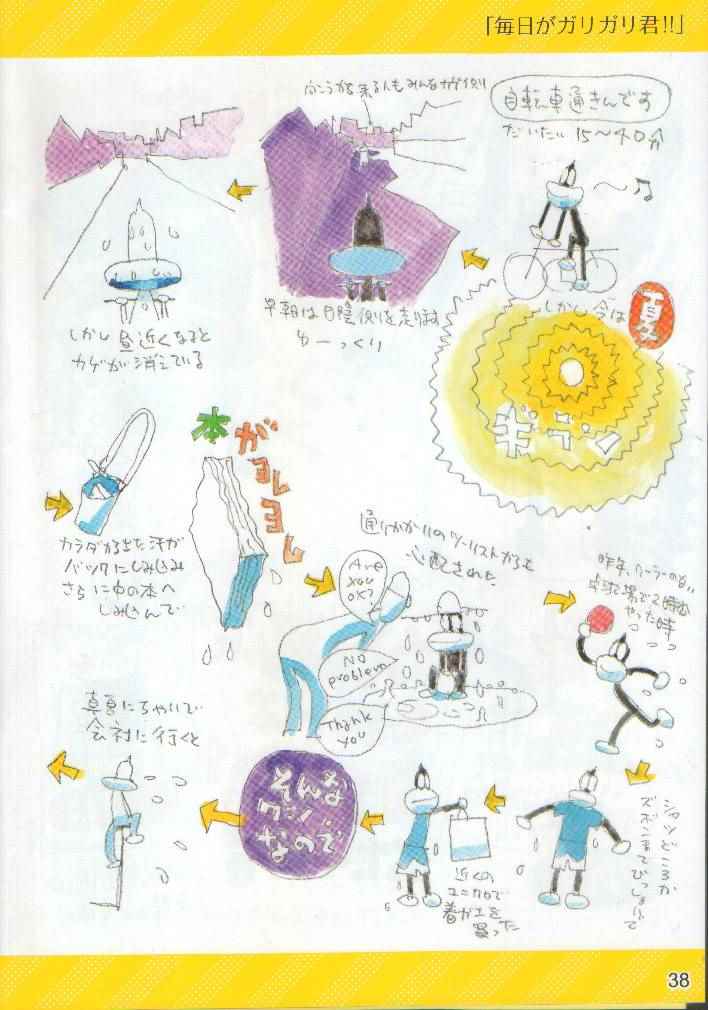 「毎日がガリガリ君!!」
自転車通きんです
だいたい 15〜40分
しかし今は
夏
ギラン
向こうから来る人もみんなカゲ側
早朝は日陰側を走ります
ゆーっくり
しかし昼近くなると
カゲが消えている
カラダから出た汗が
バックにしみこみ
さらに中の本へ
しみこんで
本がヨレヨレ
通りがかりのツーリストからも
心配された
Are
you
OK?
NO
problem
Thank
you
昨年、クーラーのない
卓球場で2時間
やった時
シャツどころか
ズボンまでびっしょりで
近くの、
ユニクロで
着がえを
買った
そんな
ワケ
なので
真夏にちゃいで
会社に行くと
38